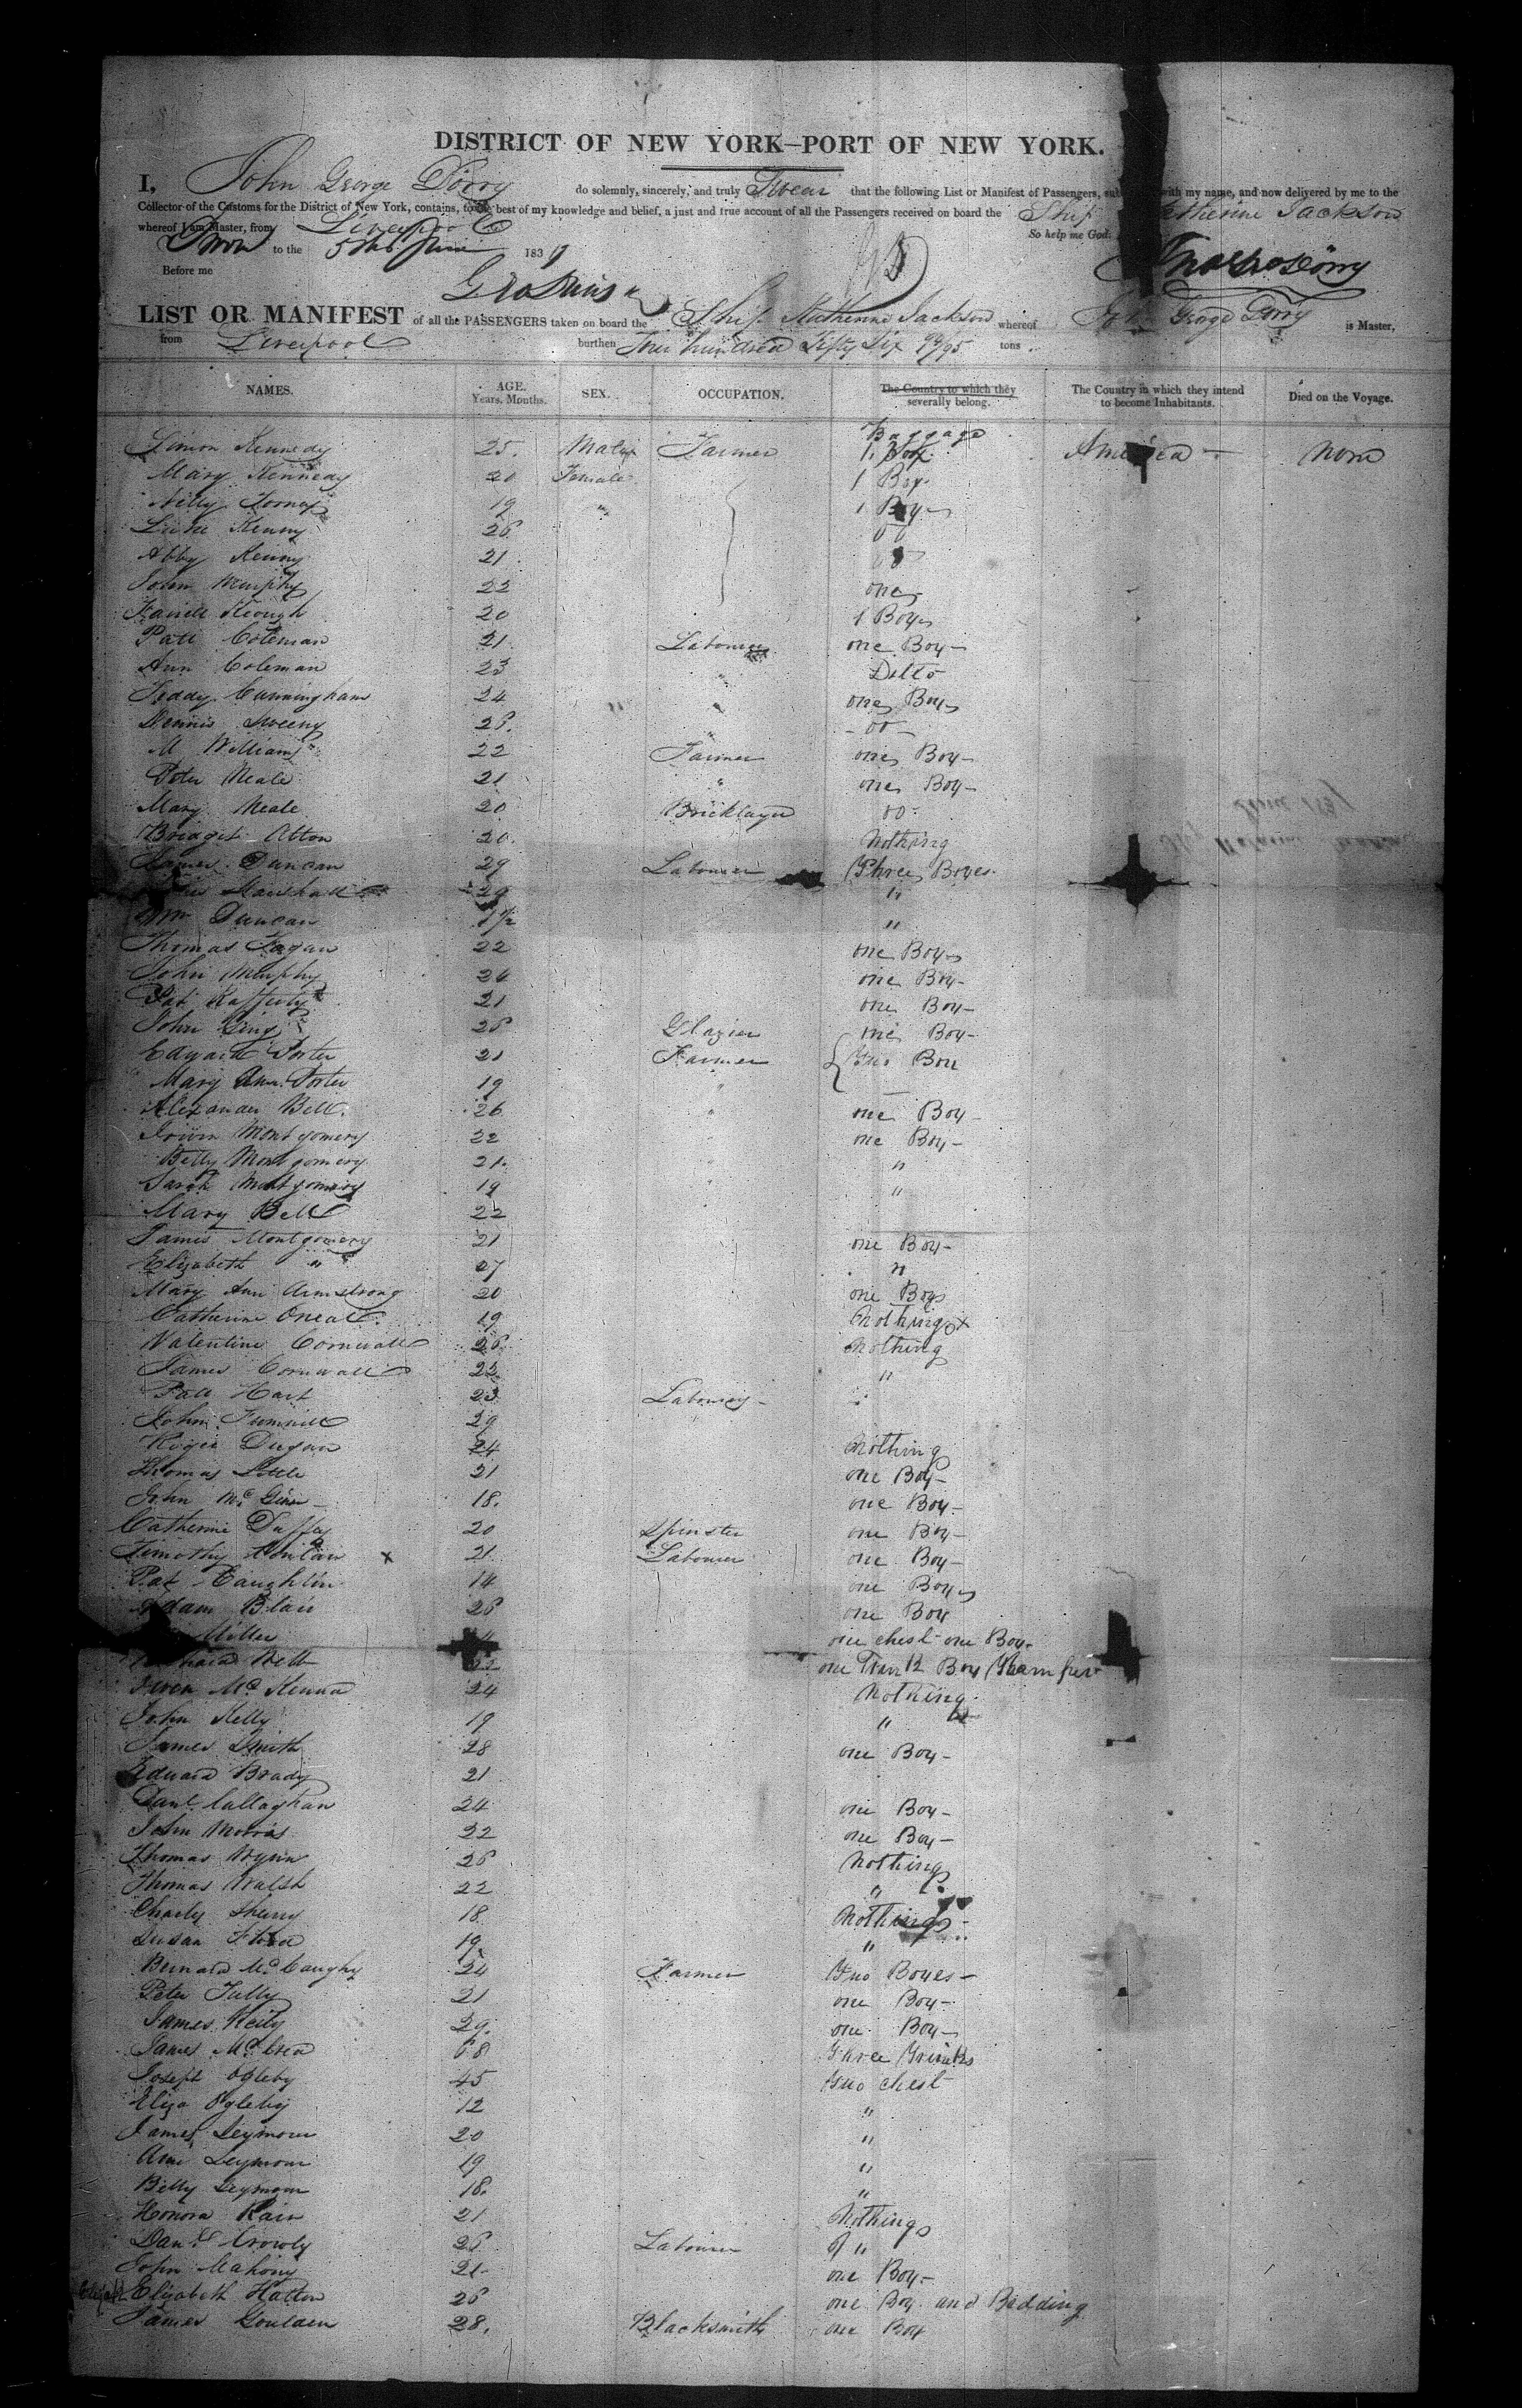 DISTRICT OF NEW YORK—PORT OF NEW YORK.
I, John George Dorry do solemnly, sincerely, and truly Swear that the following List or Manifest of Passengers, with my name, and now delivered by me to the
Collector of the Customs for the District of New York, contains, to the best of my knowledge and belief, a just and true account of all the Passengers received on board the Ship Catherine Jackson
whereof I am Master, from Liverpool So help me God.
Sworn to the 5th June 183
Before me
LIST OR MANIFEST of all the PASSENGERS taken on board the Ship Katherine Jackson whereof John George Dorry is Master,
from Liverpool burthen Four hundred Fifty Six 93/95 tons
NAMES. AGE. Years. Months. SEX. OCCUPATION. The Country to which they severally belong. The Country in which they intend to become Inhabitants. Died on the Voyage.
Baggage
Simon Kennedy 25. Male Farmer 1. Box America — None
Mary Kennedy 20 Female 1 Box
Nelly 19 " 1 Box
Luke Kenny 26
Abby Kenny 21
John Murphy 22 one
Keough 20 1 Box
Patt Coleman 21 Labourer one Box —
Ann Coleman 23 Ditto
Teddy Cunningham 24 " one Box
Dennis Sweeny 28. " - do -
M Williams 22 Farmer one Box —
Peter Neale 21 " one Box —
Mary Neale 20 Bricklayer do.
Bridget Atton 20. Nothing
James Duncan 29 Labourer Three Boxes.
Marshall 29 "
Wm Duncan 1 1/2 "
Thomas Fagan 22 one Box
John Murphy 24 one Box -
Pat Rafferty 21 one Box -
John King 28 Glazier one Box -
Edward Porter 21 Farmer Two Box
Mary Ann Porter 19 "
Alexander Bell. 26 " one Box -
Irwin Montgomery 22 one Box -
Betty Montgomery 21. "
Sarah Montgomery 19 "
Mary Bell 22
James Montgomery 21 one Box -
Elizabeth " 27 "
Mary Ann Armstrong 20 one Box
Catherine Oneall. 19 Nothing
Valentine Cornwall 28. Nothing
James Cornwall 22. "
Patt Hart 23 Labourer -
John 29
Roger Dugan 24 Nothing
Thomas Little 21 one Box -
John Mc Ginn - 18. one Box -
Catherine Duffy 20 Spinster one Box -
Timothy x 21 Labourer one Box -
Pat Laughlin 14 one Box
Adam Blair 28 one Box
Miller one chest one Box.
Webb 22 one Trunk Box
Owen Mc Kenna 24 Nothing
John Kelly 19 "
James Smith 28 one Box -
Edward Brady 21
Danl. Callaghan 24 one Box -
John Morris 22 one Box -
Thomas Wynn 26 Nothing
Thomas Walsh 22 "
Charly Sherry 18 Nothing -
Susan 19 "
Bernard Mc Caughy 24 Farmer Two Boxes -
Peter Tully 21 one Box -
James Reily 29. one Box
James Mc Crea 68 Three Trunks
Joseph Ogleby 45 Two chest
Eliza Ogleby 12 "
James Seymour 20 "
Ann Seymour 19 "
Betty Seymour 18. "
Honora Kain 21 Nothing
Danl. Crowly 28 Labourer "
John Mahony 21 one Box -
Elizabeth Hatton 26 one Box and Bedding
James Goulden 28. Blacksmith one Box